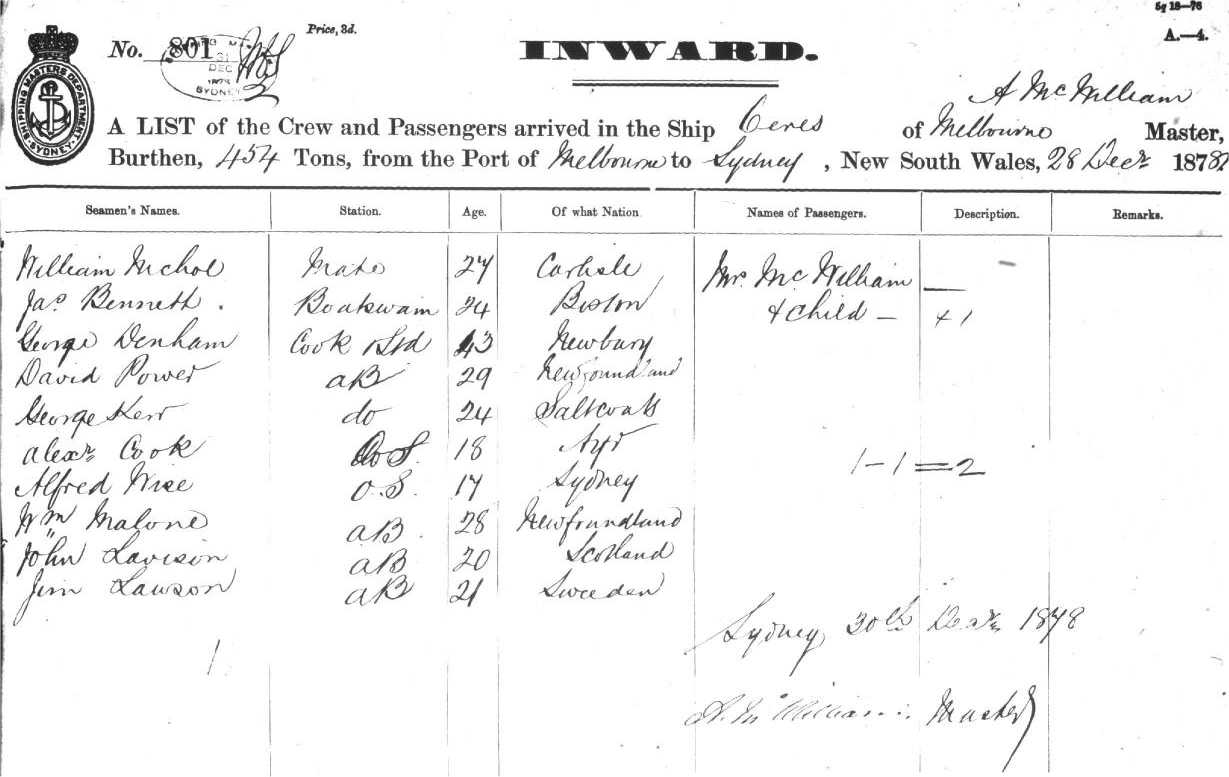 5g 18—76
Price, 3d.
No. 801
INWARD.
A.—4.
31
DEC
1878
SYDNEY
SHIPPING MASTERS DEPARTMENT
SYDNEY
A McWilliam
A LIST of the Crew and Passengers arrived in the Ship Ceres of Melbourne Master,
Burthen, 454 Tons, from the Port of Melbourne to Sydney, New South Wales, 28 Decr 1878
Seamen's Names. Station. Age. Of what Nation Names of Passengers. Description. Remarks.
William Nichol Mate 27 Carlisle Mrs McWilliam —
Jas. Bennett. Boatswain 24 Boston & Child — + 1
George Denham Cook & Std 43 Newbury
David Power aB 29 Newfoundland
George Kerr do 24 Saltcoats
Alexr Cook O.S. 18 Ayr
1 — 1 = 2
Alfred Wise O.S. 17 Sydney
Wm Malone aB. 28 Newfoundland
John Lavison aB 20 Scotland
Jim Lawson aB 21 Sweeden
Sydney 30th Decr 1878
A. McWilliam Master